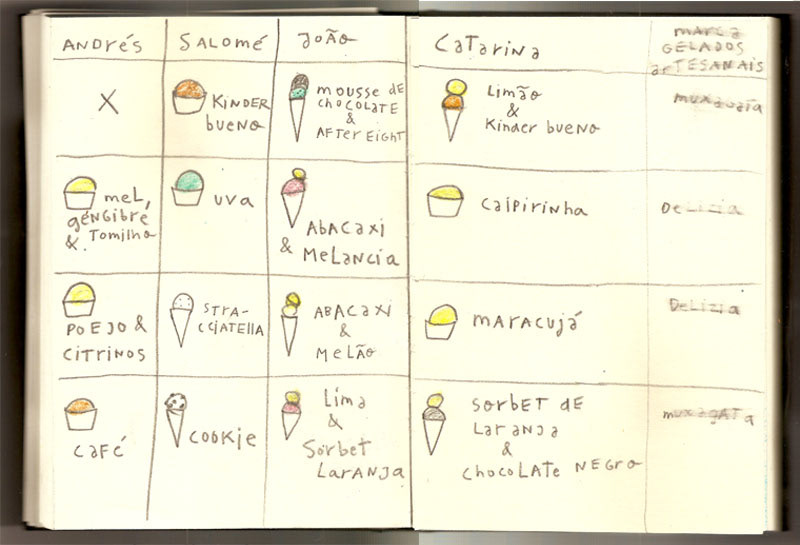 ANDRÉS
SALOMÉ
JOÃO
CATARINA
MARCA
GELADOS
ARTESANAIS
X
KINDER
bueno
mousse DE
CHOCOLATE
&
AFTER EIGHT
Limão
&
Kinder bueno
muxagata
mel,
gengibre
& Tomilho
uva
Abacaxi
& Melancia
Caipirinha
Delizia
POEJO &
CITRINOS
STRA-
CCIATELLA
ABACAXI
&
MELÃO
MARACUJÁ
Delizia
CAFÉ
COOKIE
Lima
&
Sorbet
Laranja
SORBET DE
Laranja
&
CHOCOLATE NEGRO
muxagata